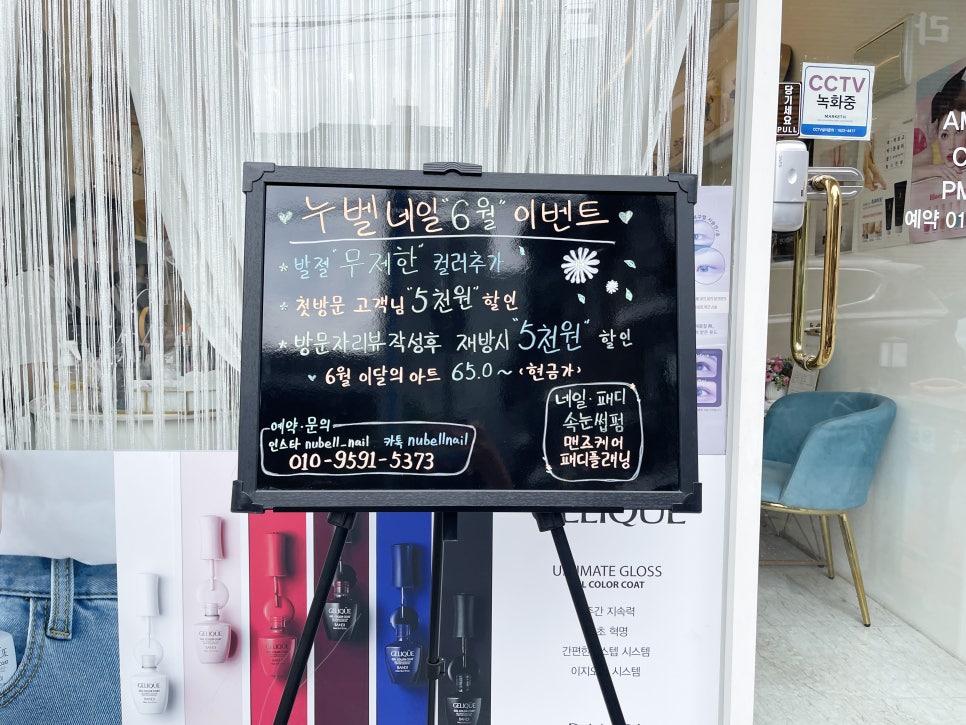 누벨네일 "6월" 이벤트
* 발절 "무제한" 컬러추가
* 첫방문 고객님 "5천원" 할인
* 방문자리뷰작성후 재방시 "5천원" 할인
♥ 6월 이달의 아트 65.0~ (현금가)
예약·문의
인스타 nubell_nail 카톡 nubellnail
010-9591-5373
네일·패디
속눈썹펌
맨즈케어
패디플래닝
당기세요
PULL
CCTV
녹화중
MARKET
예약 01
GELIQUE
GELIQUE
GELIQUE
GELIQUE
BANDI
ULTIMATE GLOSS
GEL COLOR COAT
지속력
혁명
시스템
시스템